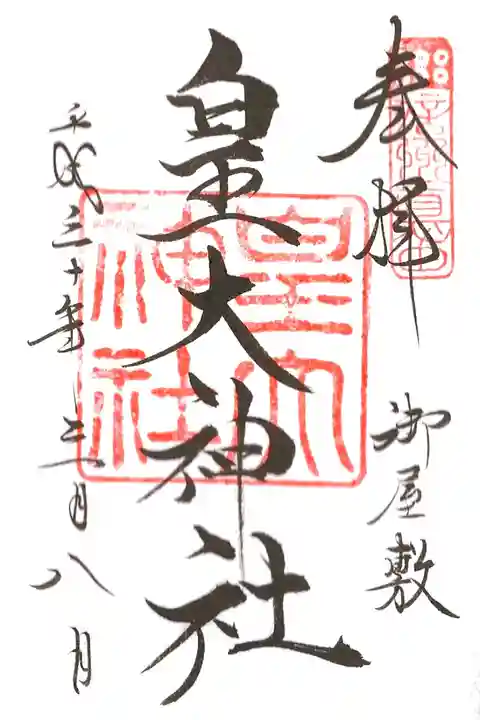 奉拝
信州真田
御屋敷
皇大神社
皇大
神社
平成三十年三月八日